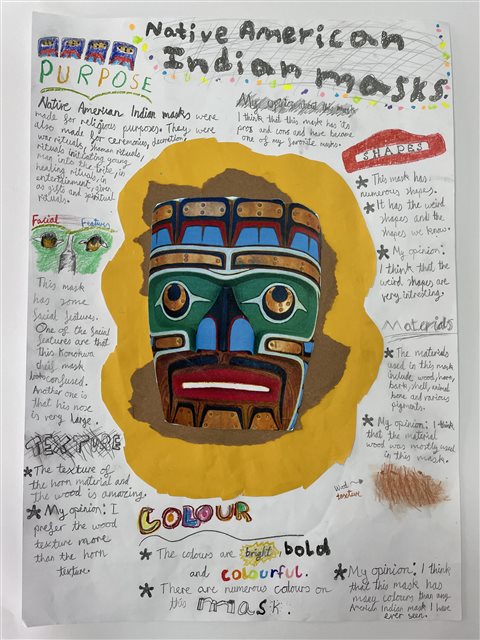 Native American
Indian masks.
PURPOSE
Native American Indian masks were
made for religious purposes. They were
also made for ceremonies, decoration,
war rituals, shaman rituals,
rituals initiating young
men into the tribe, in
healing rituals, in
entertainment, given
as gifts and spiritual
rituals.
My opinion: that this mask
I think that this mask has its
pros and cons and have become
one of my favorite masks.
SHAPES
* This mask has
numerous shapes.
* It has the weird
shapes and the
shapes we know.
* My opinion:
I think that the
weird shapes are
very intresting.
Facial Features
This mask
has some
facial features.
One of the facial
features are that
this
mask
confused.
Another one is
that his nose
is very large.
Materials
* The materials
used in this mask
include wood, horn,
bark, shell, animal
bone and various
pigments.
* My opinion: I think
that the material
wood was mostly used
in this mask.
Wood
texture
TEXTURE
* The texture of
the horn material and
the wood is amazing.
* My opinion: I
prefer the wood
texture more
than the horn
texture.
COLOUR
* The colours are bright, bold
and colourful.
* There are numerous colours on
this mask.
* My opinion: I think
that this mask has
many colours than any
American Indian mask I have
ever seen.